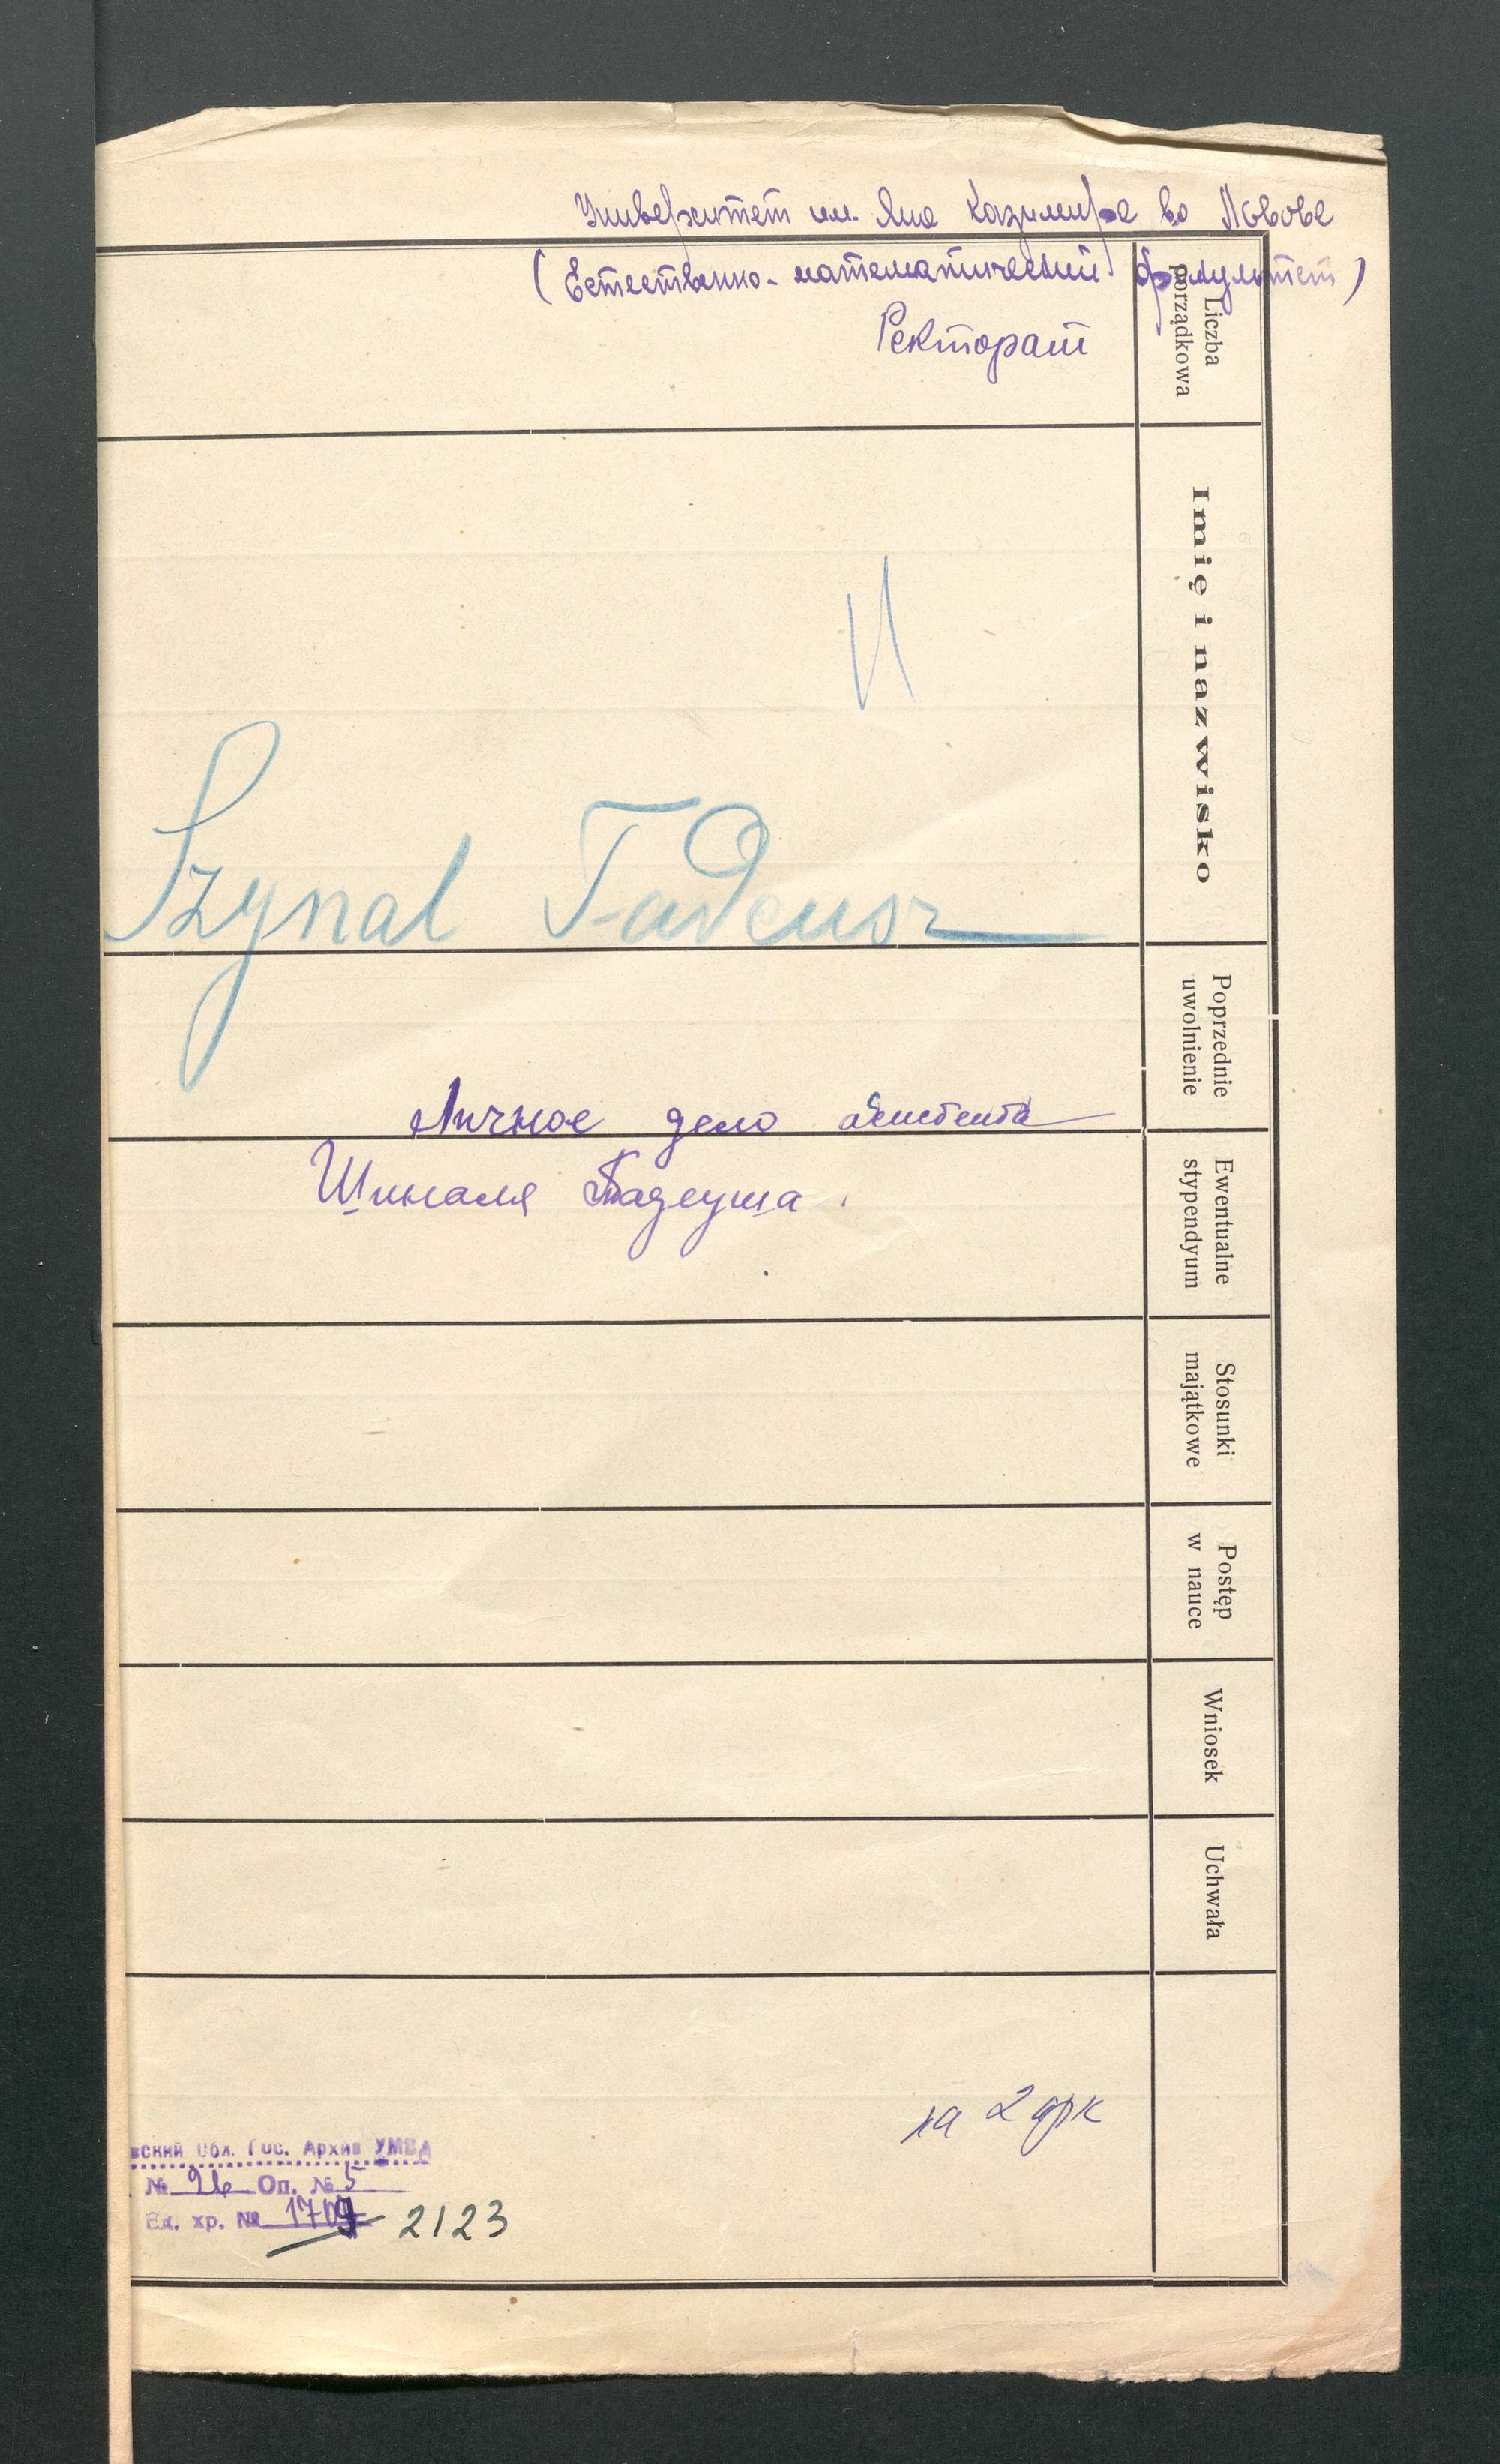 Университет им. Яна Казимира во Львове
(Естественно-математический факультет)
Ректорат
Liczba
porządkowa
Imię i nazwisko
Szynal Tadeusz
Poprzednie
uwolnienie
Личное дело асистента
Шиналя Тадеуша.
Ewentualne
stypendyum
Stosunki
majątkowe
Postęp
w nauce
Wniosek
Uchwała
на 2 арк
вский Обл. Гос. Архив УМВД
№ 26 Оп. № 5
Ед. хр. № 1709 2123